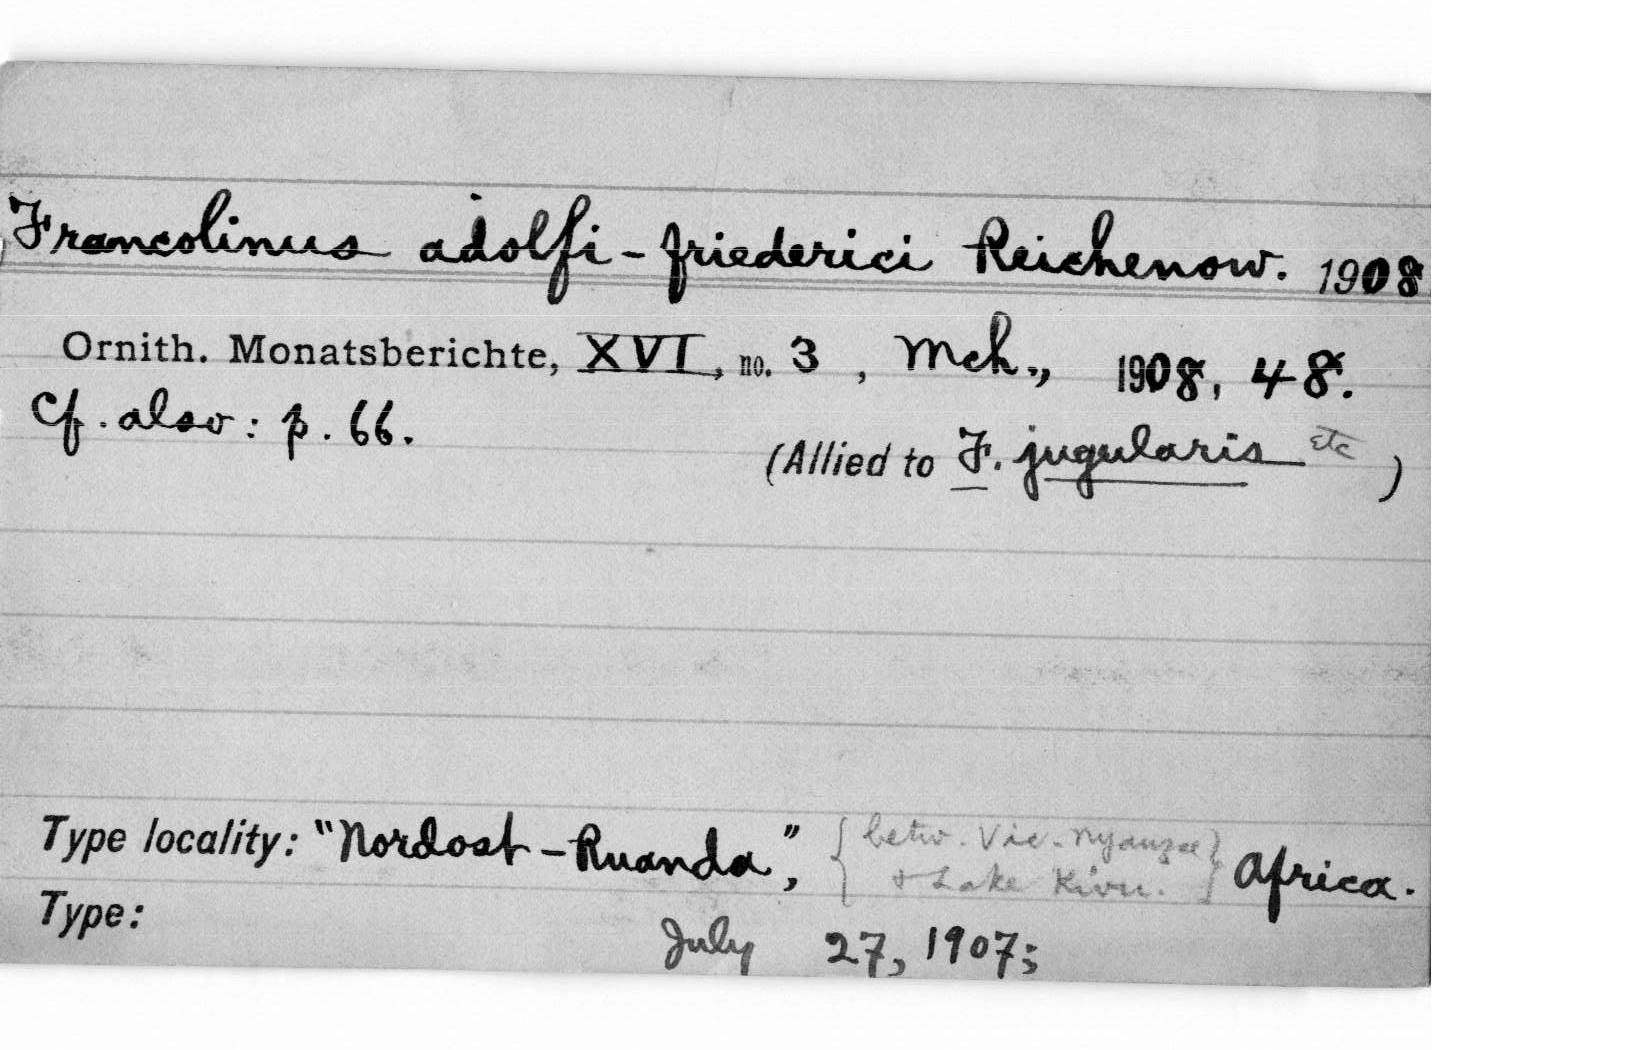 Francolinus adolfi-friederici Reichenow. 1908
Ornith. Monatsberichte, XVI, no. 3, Mch., 1908, 48.
Cf. also: p. 66.
(Allied to F. jugularis etc)
Type locality: "Nordost-Ruanda," {betw. Vic. Nyanzae & Lake Kivu.} Africa.
Type:
July 27, 1907;